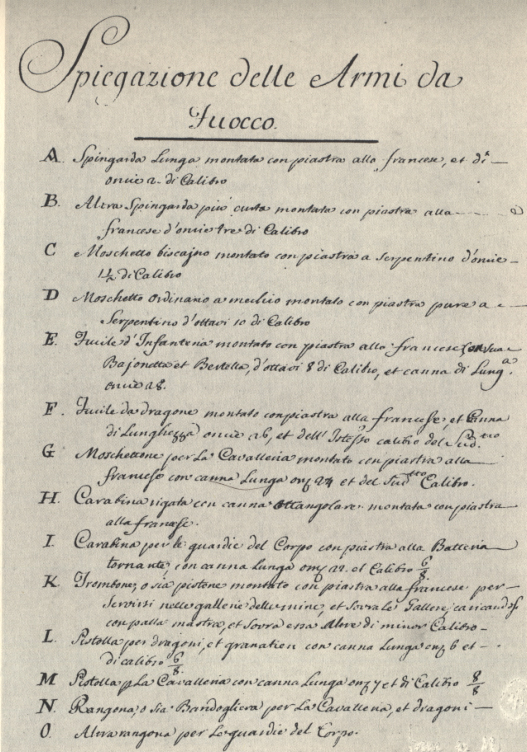 Spiegazione delle Armi da
Fuocco.
A. Spingarda Lunga montata con piastra alla francese, et di
oncie 2. di Calibro
B. Altra Spingarda più curta montata con piastra alla
francese d'oncie tre di Calibro
C Moschetto biscajno montato con piastra a Serpentino d'oncie
1½ di Calibro
D Moschetto Ordinario a mechio montato con piastra pure a
Serpentino d'ottavi 10 di Calibro
E. Fucile d'Infanteria montato con piastra alla francese con sua
Bajonetta et Bertella, d'ottavi 8 di Calibro, et canna di Lunga
oncie 28.
F. Fucile da dragone montato con piastra alla francese, et Canna
di Lunghezza oncie 26, et dell'Istesso calibro del Sud.tto
G. Moschettone per La Cavalleria montato con piastra alla
francese con canna Lunga onz 24 et del Sud.tto Calibro.
H. Carabina rigata con canna ottangolare montata con piastra
alla francese.
I. Carabina per le guardie del Corpo con piastra alla Batteria
tornante con canna Lunga onz 22. et Calibro 6/8.
K. Trombone, o sia pistone montato con piastra alla francese per
servirsi nelle gallerie delle mine, et Sovra le Gallere, caricandosi
con palla mastra, et Sovra essa Altre di minor Calibro
L. Pistolla per dragoni, et granatieri con canna Lunga onz 6 et
di calibro 6/8.
M Pistolla p La Cavalleria con canna Lunga onz 7 et di Calibro 8/8
N. Rangona, o sia Bandogliera per La Cavalleria, et dragoni
O. Altra rangona per Le guardie del Corpo.